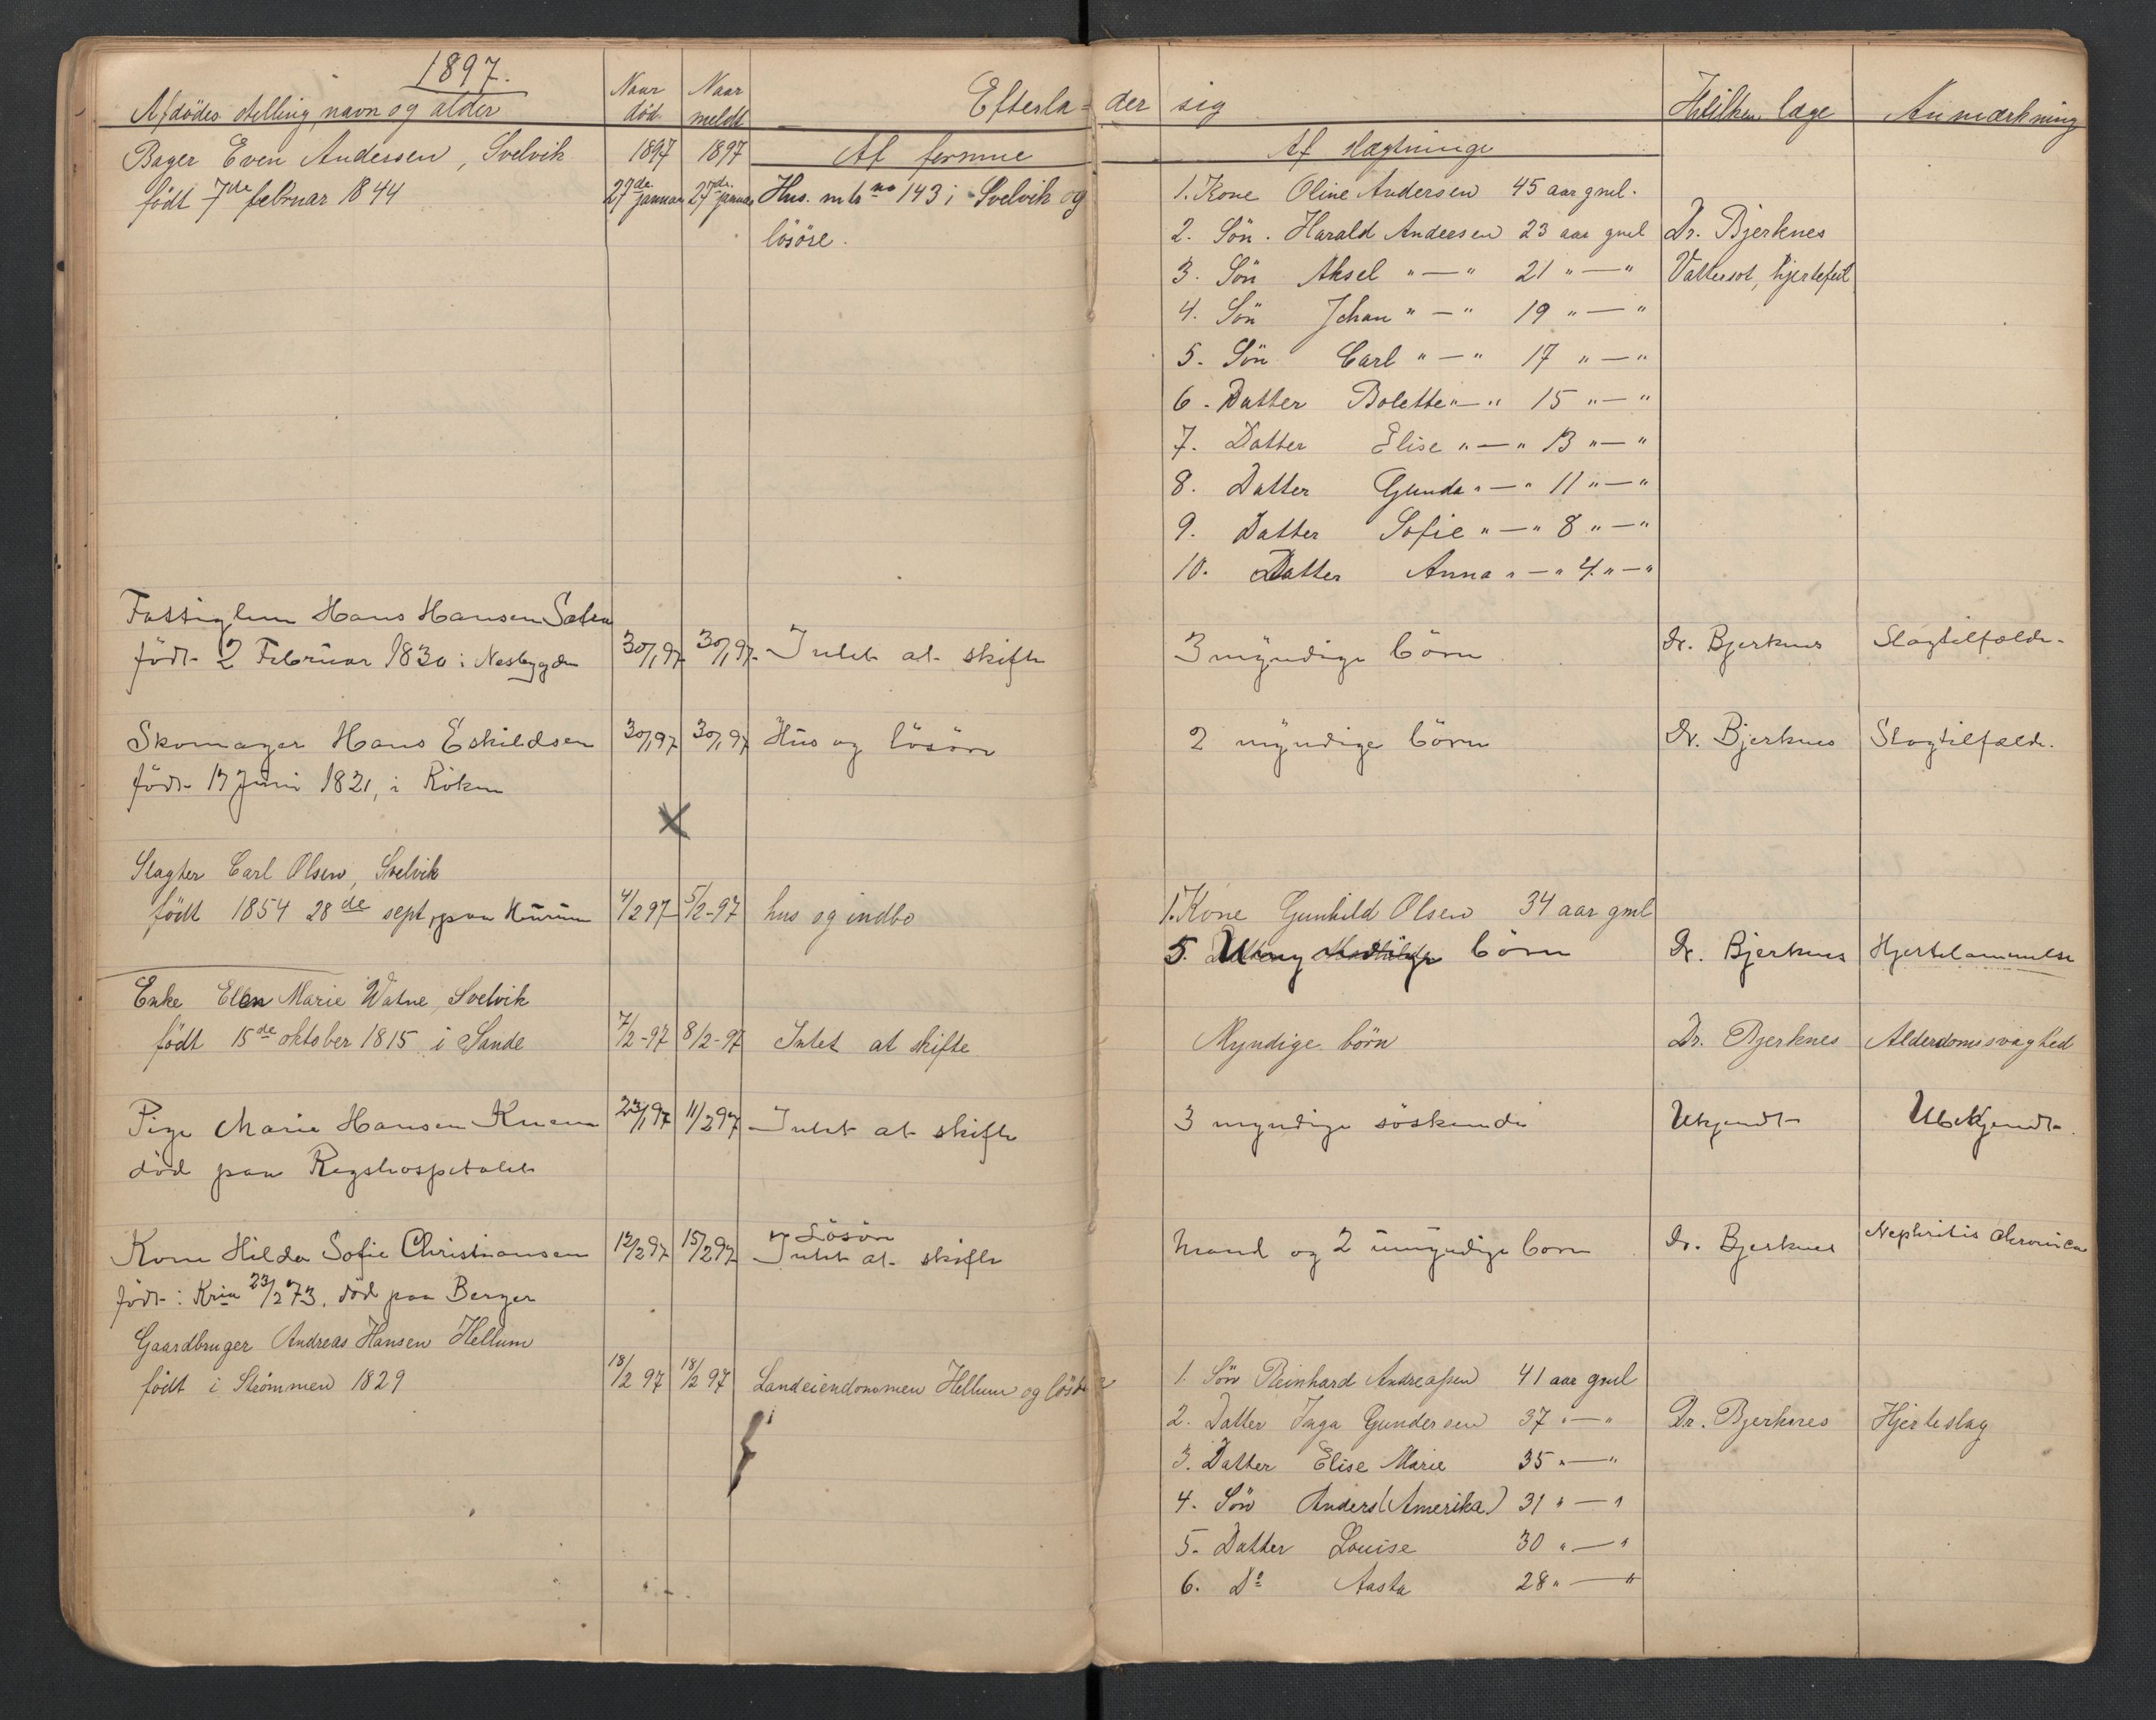 1897.
Afdödes stilling, navn og alder
Naar död.
Naar meldt
Efterla=
der sig
Hvilken læge
Anmærkning
Bager Even Andersen, Svelvik
1897
1897
Af formue
Af slægtninge
födt 7de februar 1844
27de januar
27de januar
Hus. mtr no 143 i Svelvik og
lösöre.
1. Kone Oline Andersen 45 aar gml.
2. Sön. Harald Andersen 23 aar gml
Dr. Bjerknes
3. Sön Aksel " — " 21 " — "
Vattersot, hjertefeil
4. Sön Johan " — " 19 " — "
5. Sön Carl " — " 17 " — "
6. Datter Bolette " — " 15 " — "
7. Datter Elise " — " 13 " — "
8. Datter Gunda " — " 11 " — "
9. Datter Sofie " — " 8 " — "
10. Datter Anna " — " 4 " — "
Fattiglem Hans Hansen
födt 2 Februar 1830 i Nesbygden
30/1 97
30/1 97
Intet at skifte
3 myndige börn
Dr. Bjerknes
Slagtilfælde.
Skomager Hans Eskildsen
30/1 97
30/1 97
Hus og lösöre
2 myndige börn
Dr. Bjerknes
Slagtilfælde.
födt 17 Juni 1821, i Röken
X
Slagter Carl Olsen, Svelvik
födt 1854 28de sept, paa Hurum
4/2 97
5/2-97
hus og indbo
1. Kone Gunhild Olsen 34 aar gml
5. Umyndige börn
Dr. Bjerknes
Hjertelammelse
Enke Elen Marie Watne, Svelvik
födt 15de oktober 1815 i Sande
7/2-97
8/2-97
Intet at skifte
Myndige börn
Dr. Bjerknes
Alderdomssvaghed
Pige Marie Hansen Knem
23/1 97
11/2 97
Intet at skifte
3 myndige söskende
Ukjendt
Ubekjendt.
död paa Rigshospitalet
Lösöre
Kone Hilda Sofie Christiansen
12/2 97
15/2 97
Intet at skifte
Mand og 2 umyndige born
Dr. Bjerknes
Nephritis chronica
födt i Kria 23/2 73. död paa Berger
Gaardbruger Andreas Hansen Hellum
födt i Strömmen 1829
18/2 97
18/2 97
Landeiendommen Hellum og lösöre
1. Sön Reinhard Andreassen 41 aar gml
2. Datter Inga Gundersen 37 " — "
Dr. Bjerknes
Hjerteslag
3. Datter Elise Marie 35 " — "
4. Sön Anders (Amerika) 31 " — "
5. Datter Louise 30 " — "
6. Do Aasta 28 " — "